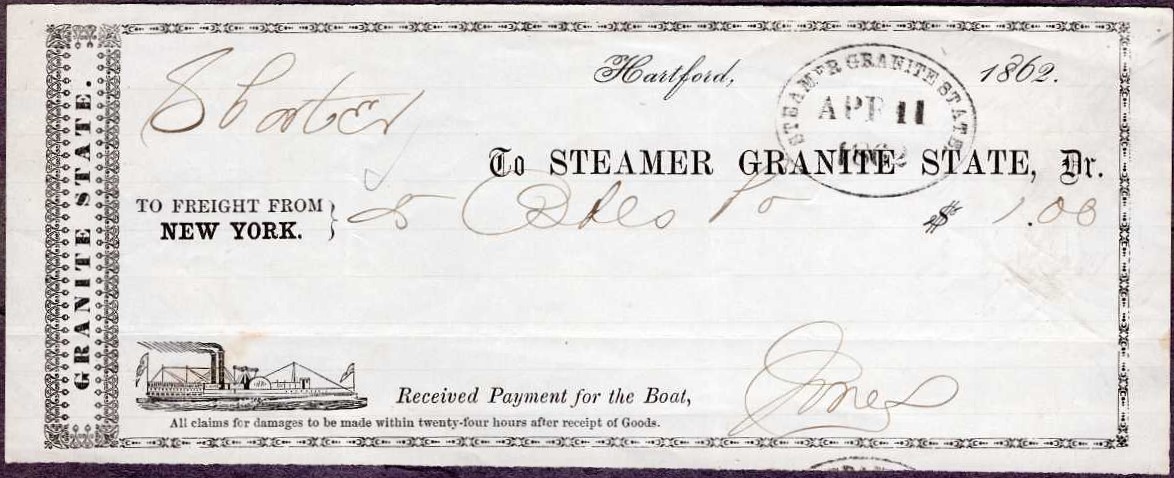 GRANITE STATE.
Hartford, 1862.
STEAMER GRANITE STATE
APR 11
1862
To STEAMER GRANITE STATE, Dr.
TO FREIGHT FROM
NEW YORK. } 5 $ 1.00
Received Payment for the Boat, Jones
All claims for damages to be made within twenty-four hours after receipt of Goods.